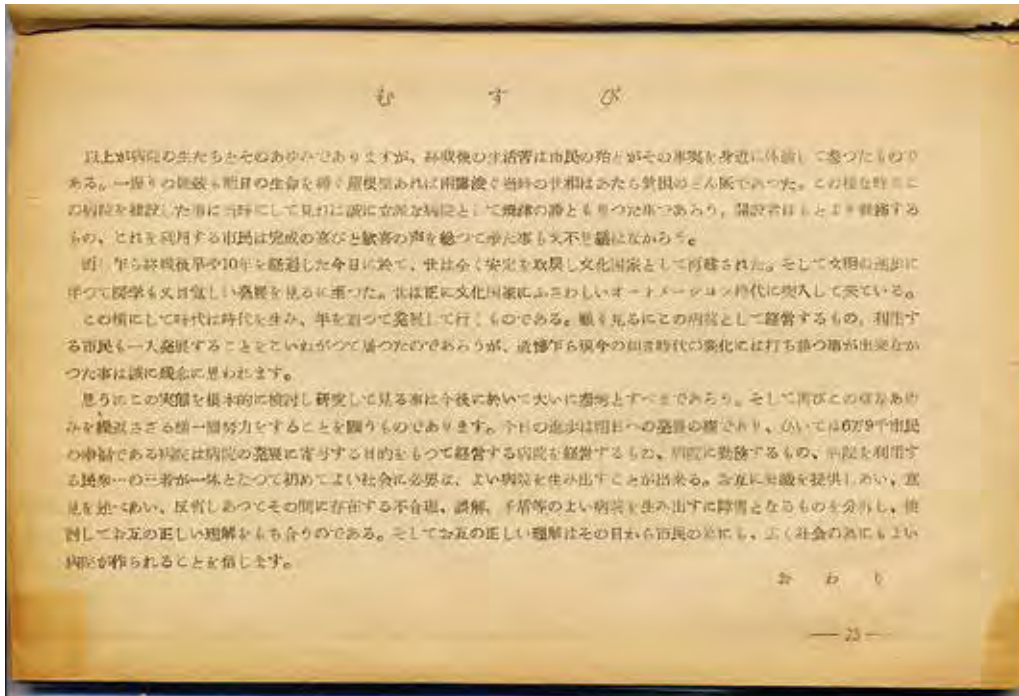 むすび
以上が病院の生たちとそのあゆみでありますが、終戦後の生活苦は市民の殆どがその事実を身近に体験して参つたもので
ある。一握りの 明日の生命を 屋根型あれば雨露凌ぐ当時の世相はあたら貧困のどん底であつた。この様な時に
の病院を建設した事は当時にして見れば誠に立派な病院として焼津の誇ともなつた事つあろう。開設者はもとより勤務する
もの、これを利用する市民は完成の喜びと歓喜の声を 事も又不思議はなかろう。
乍ら終戦後早や10年を経過した今日に於て、世は全く安定を取戻し文化国家として再建された。そして文明の進歩に
伴つて医学も又目覚しい発展を見るに至つた。世は正に文化国家にふさわしいオートメーション時代に突入して来ている。
この様にして時代は時代を生み、年を追つて発展して行くものである。 見るにこの病院として経営するもの、利用す
る市民も一入発展することをこいねがつて居つたのであろうが、遺憾乍ら現今の如き時代の変化には打ち勝つ事が出来なか
つた事は誠に残念に思われます。
思うにこの実態を根本的に検討し研究して見る事は今後に於いて大いに参考とすべきであろう。そして再びこの様なあゆ
みを繰返さざる様一層努力をすることを願うものであります。今日の進歩は明日への発展の礎であり、ひいては6万9千市民
の幸福である病院は病院の発展に寄与する目的をもつて経営する病院を経営するもの、病院に勤務するもの、病院を利用す
る民衆…の三者が一体となつて初めてよい社会に必要な、よい病院を生み出すことが出来る。お互に知識を提供しあい、意
見を述べあい、反省しあつてその間に存在する不合理、誤解、矛盾等のよい病院を生み出すに障害となるものを分析し、検
討してお互の正しい理解をもち合うのである。そしてお互の正しい理解はその日から市民の為にも、広く社会の為にもよい
病院が作られることを信じます。
おわり
— 25 —